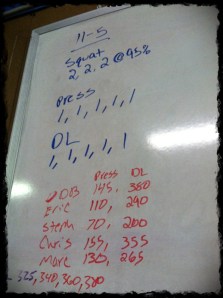 11-5
Squat
2, 2, 2 @ 95%
Press
1, 1, 1, 1, 1
DL
1, 1, 1, 1, 1
Press DL
DB 145, 380
Eric 110, 290
70, 200
Chris 155, 355
Marc 130, 265
325, 340, 360, 380